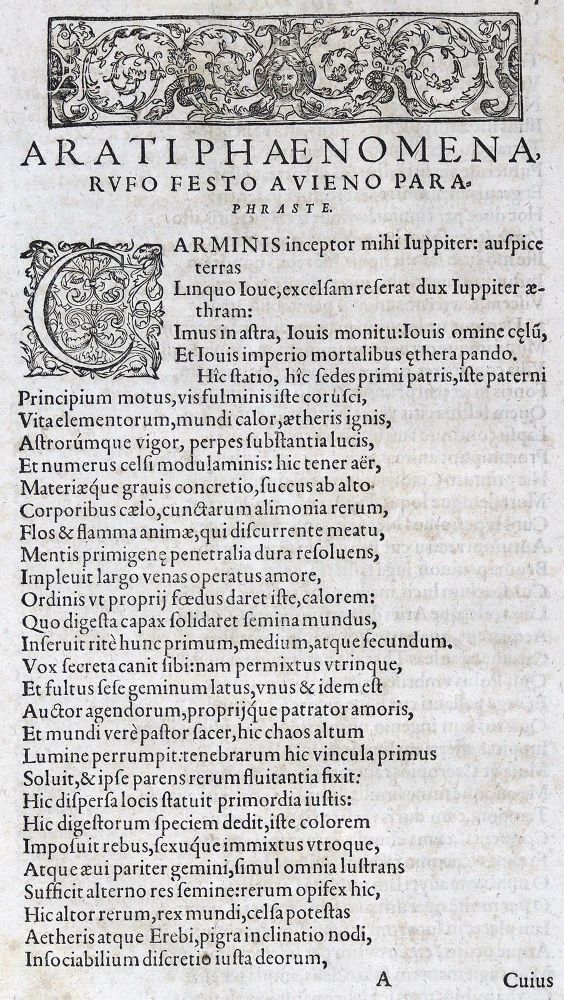 ARATI PHAENOMENA,
RVFO FESTO AVIENO PARA-
PHRASTE.
CARMINIS inceptor mihi Iuppiter: auspice
terras
Linquo Ioue, excelsam reserat dux Iuppiter æ-
thram:
Imus in astra, Iouis monitu: Iouis omine cęlũ,
Et Iouis imperio mortalibus ęthera pando.
Hîc statio, hîc sedes primi patris, iste paterni
Principium motus, vis fulminis iste corusci,
Vita elementorum, mundi calor, ætheris ignis,
Astrorúmque vigor, perpes substantia lucis,
Et numerus celsi modulaminis: hic tener aër,
Materiæque grauis concretio, succus ab alto
Corporibus cælo, cunctarum alimonia rerum,
Flos & flamma animæ, qui discurrente meatu,
Mentis primigenę penetralia dura resoluens,
Impleuit largo venas operatus amore,
Ordinis vt proprij fœdus daret iste, calorem:
Quo digesta capax solidaret semina mundus,
Inseruit ritè hunc primum, medium, atque secundum.
Vox secreta canit sibi: nam permixtus vtrinque,
Et fultus sese geminum latus, vnus & idem est
Auctor agendorum, proprijq́ue patrator amoris,
Et mundi verè pastor sacer, hic chaos altum
Lumine perrumpit: tenebrarum hic vincula primus
Soluit, & ipse parens rerum fluitantia fixit:
Hic dispersa locis statuit primordia iustis:
Hic digestorum speciem dedit, iste colorem
Imposuit rebus, sexuq́ue immixtus vtroque,
Atque æui pariter gemini, simul omnia lustrans
Sufficit alterno res semine: rerum opifex hic,
Hic altor rerum, rex mundi, celsa potestas
Aetheris atque Erebi, pigra inclinatio nodi,
Insociabilium discretio iusta deorum,
A Cuius